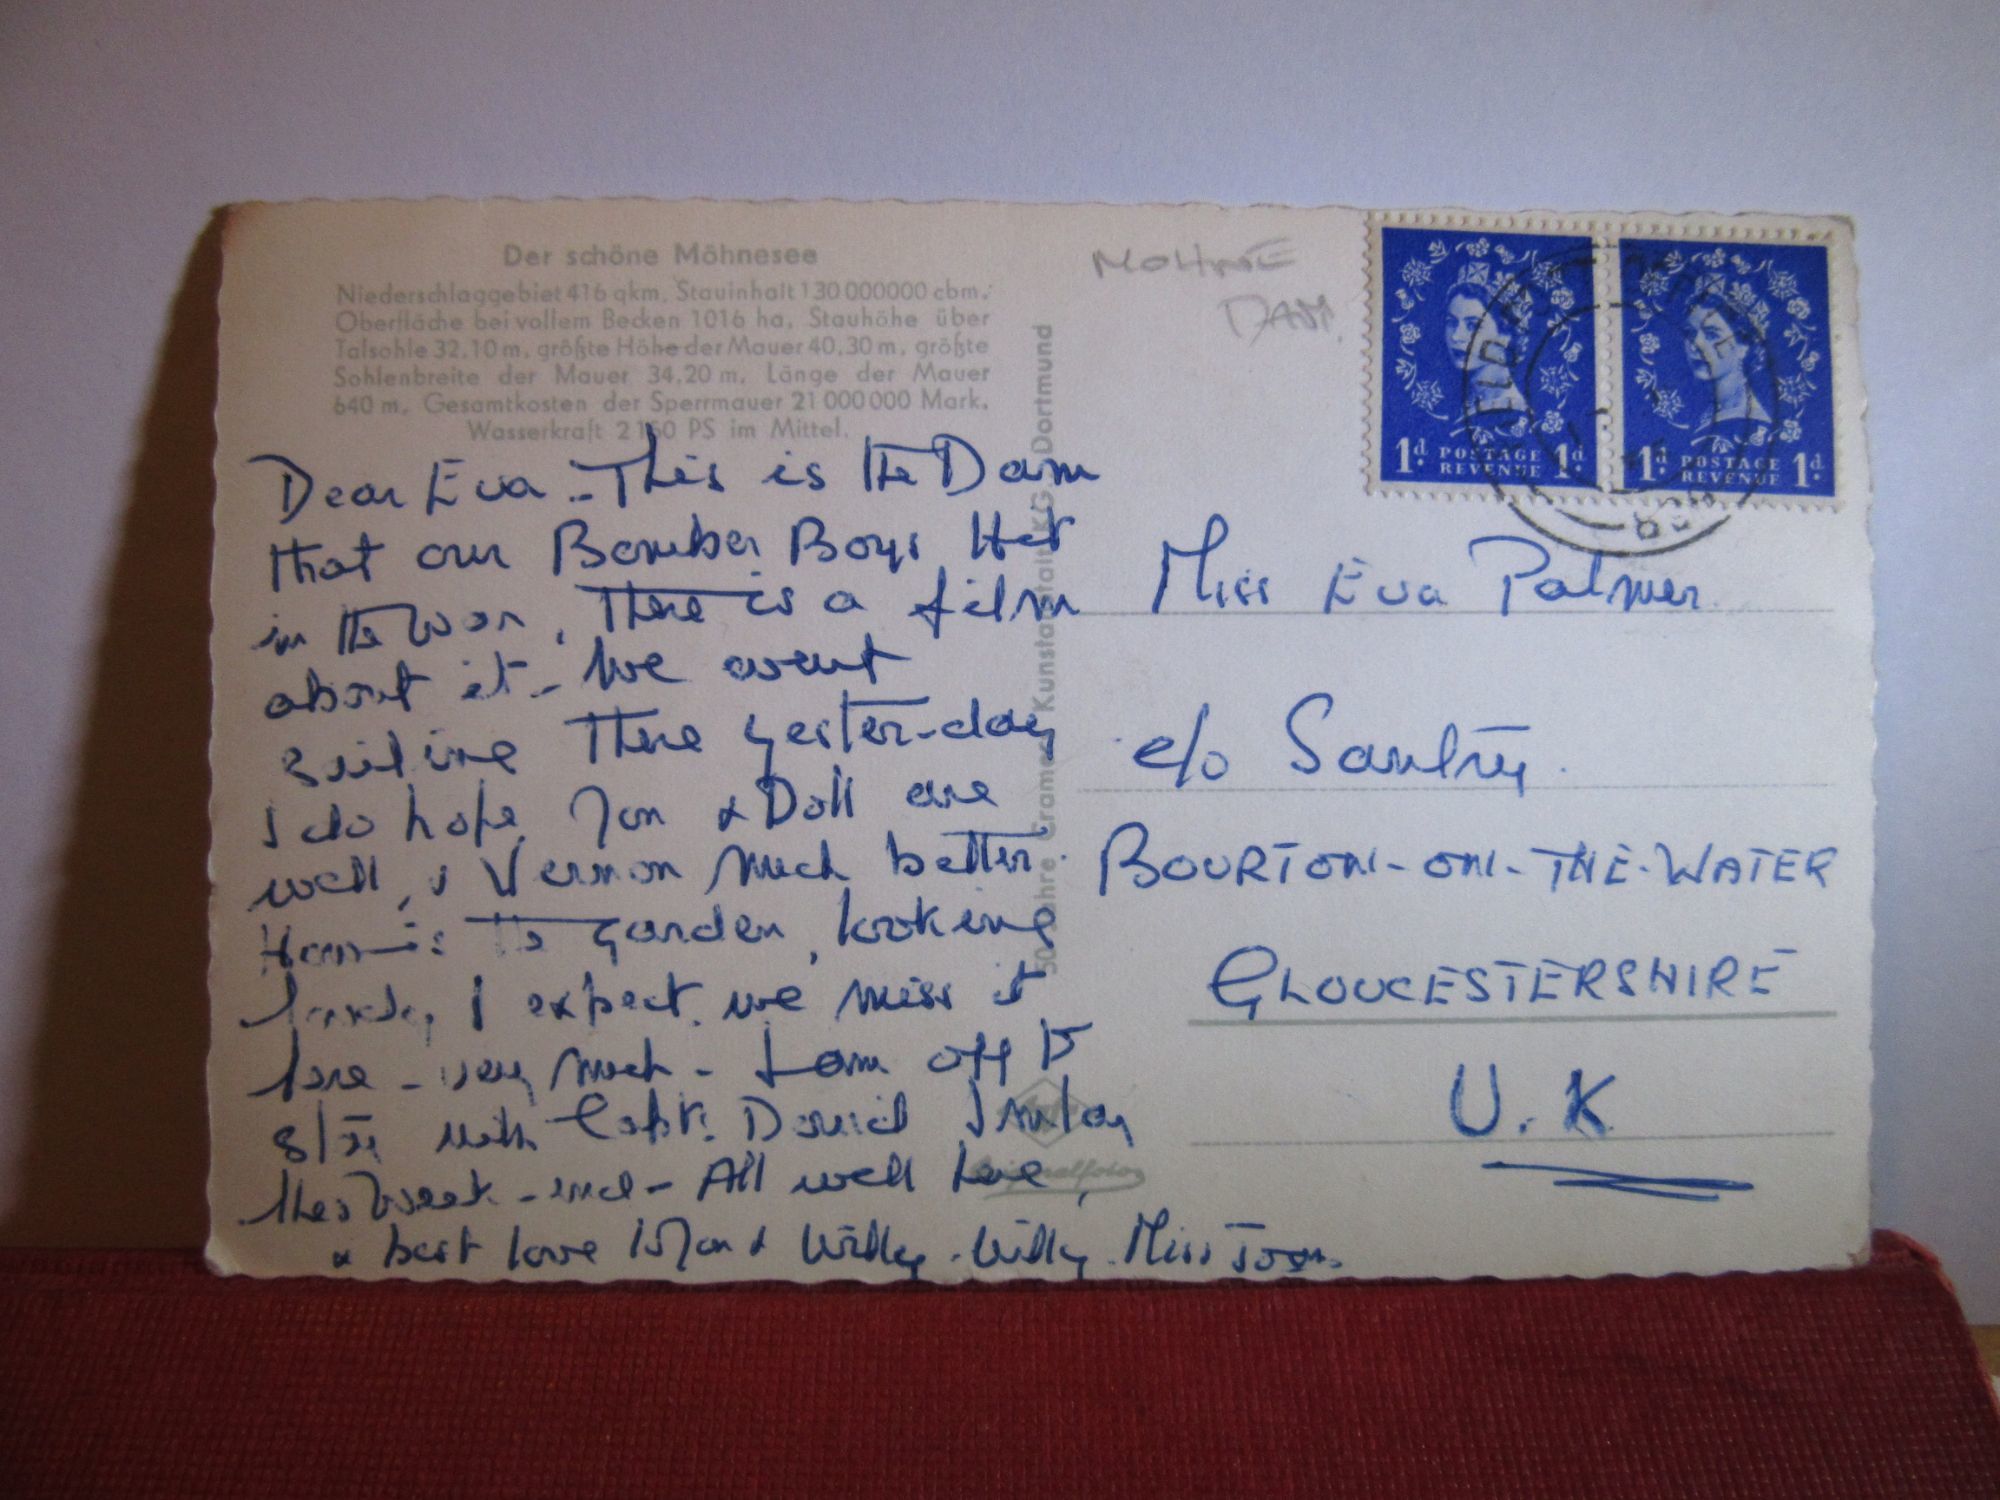 Der schöne Möhnesee
Niederschlaggebiet 416 qkm, Stauinhalt 130 000000 cbm,
Oberfläche bei vollem Becken 1016 ha, Stauhöhe über
Talsohle 32,10 m, größte Höhe der Mauer 40,30 m, größte
Sohlenbreite der Mauer 34,20 m, Länge der Mauer
640 m, Gesamtkosten der Sperrmauer 21 000 000 Mark,
Wasserkraft 2160 PS im Mittel.
Dear Eva - This is the Dam
that our Bomber Boys Hit
in the war, There is a film
about it - We went
sailing There yester-day
I do hope Jon & Doll are
well, & Vernon Much better.
is the garden, looking
I expect, we miss it
here - very much - I am off to
with Capt. David
this Week-end - All well here,
& best love to Jon & Willy-Willy. Miss
50 Jahre Cramers Kunstanstalt KG, Dortmund
Originalfoto
MOHNE
DAM.
1d POSTAGE REVENUE 1d
1d POSTAGE REVENUE 1d
FIELD POST OFFICE
Miss Eva Palmer
c/o
BOURTON-ON-THE-WATER
GLOUCESTERSHIRE
U.K